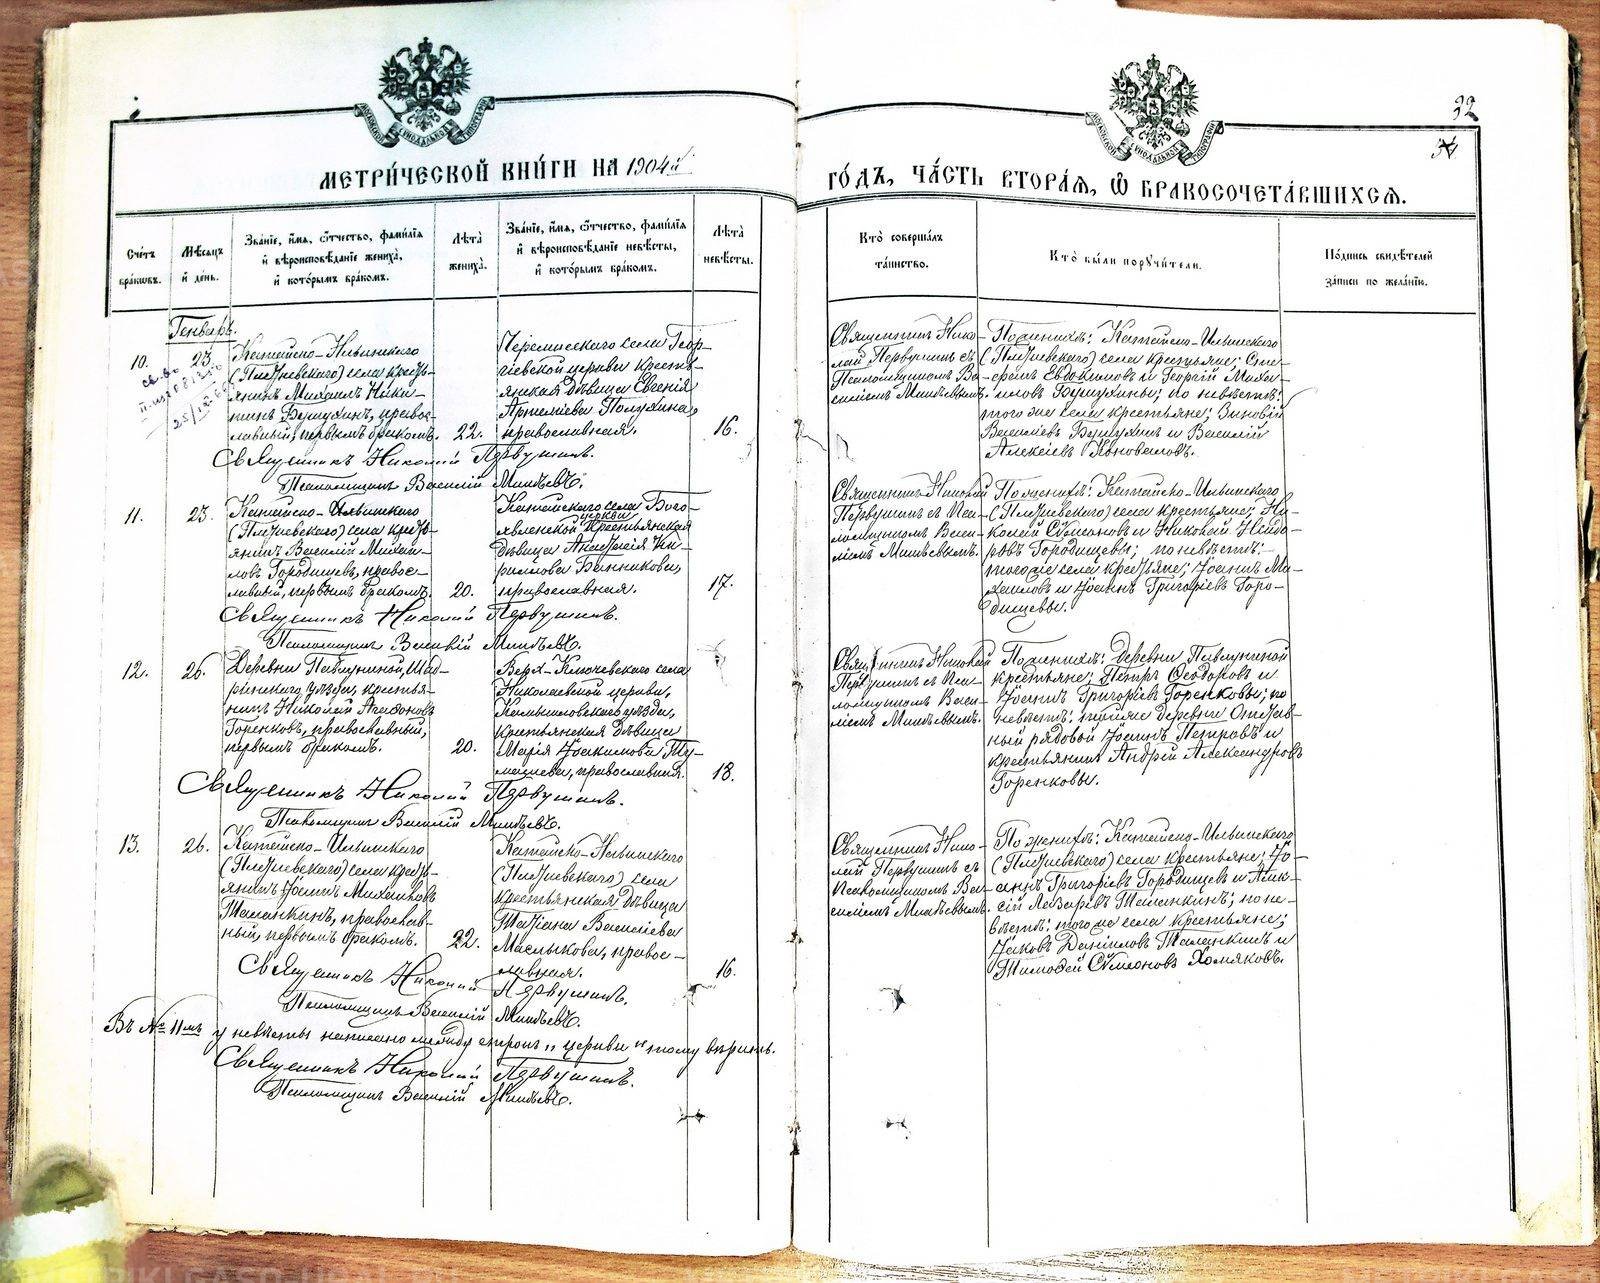 32
34
МЕТРИ́ЧЕСКОЙ КНИ́ГИ НА 1904й
ГО́ДЪ, ЧА́СТЬ ВТОРА́Я, Ѿ БРАКОСОЧЕТА́ВШИХСЯ.
Сче́тъ бра́кѡвъ.
Мѣ́сяцъ и҆ де́нь.
Зва́нїе, и҆́мя, ѻ҆́тчество, фами́лїя
и҆ вѣроисповѣ́данїе жениха̀,
и҆ кото́рымъ бра́комъ.
Лѣ́та
жениха̀.
Зва́нїе, и҆́мя, ѻ҆́тчество, фами́лїя
и҆ вѣроисповѣ́данїе невѣ́сты,
и҆ кото́рымъ бра́комъ.
Лѣ́та
невѣ́сты.
Кто̀ соверша́лъ
та́инство.
Кто̀ бы́ли порꙋчи́тели.
По́дпись свидѣ́телей
за́писи по жела́нїю.
Генварь.
10.
23.
Катайско-Ильинскаго
(Плетневскаго) села кресть-
янинъ Михаилъ Ники-
тинъ Бушухинъ, правос-
лавный, первымъ бракомъ.
22.
села Геор-
гіевской церкви крестья-
янская дѣвица Евгенія
Артеміева Полухина,
православная.
16.
Священникъ Нико-
лай Первушинъ съ
Псаломщикомъ Ва-
силіемъ Минѣевымъ.
По женихѣ: Катайско-Ильинскаго
(Плетневскаго) села крестьяне; Сте-
фанъ Евдокимовъ и Георгій Михаи-
ловъ Бушухины; по невѣстѣ:
того же села крестьяне; Зиновій
Василіевъ Бушухинъ и Василій
Алексіевъ Коноваловъ.
Священникъ Николай Первушинъ.
Псаломщикъ Василій Минѣевъ.
11.
23.
Катайско-Ильинскаго
(Плетневскаго) села кресть-
янинъ Василій Михаи-
ловъ Городищевъ, правос-
лавный, первымъ бракомъ.
20.
Катайскаго села Бого-
явленской церкви крестьянская
дѣвица Анастасія Ки-
рилова Банникова,
православная.
17.
Священникъ Николай
Первушинъ съ Пса-
ломщикомъ Васи-
ліемъ Минѣевымъ.
По женихѣ: Катайско-Ильинскаго
(Плетневскаго) села крестьяне; Ни-
колай Сѵмеоновъ и Николай Исидо-
ровъ Городищевы; по невѣстѣ:
того же села крестьяне; Іоаннъ Ми-
хаиловъ и Іоаннъ Григоріевъ Горо-
дищевы.
Священникъ Николай Первушинъ.
Псаломщикъ Василій Минѣевъ.
12.
26.
Деревни Павлуниной, Шад-
ринскаго уѣзда, крестья-
нинъ Николай Агафоновъ
Горенковъ, православный,
первымъ бракомъ.
20.
Верх-Ключевскаго села
Николаевской церкви,
Камышловскаго уѣзда,
крестьянская дѣвица
Марія Іоакимова Ту-
православная.
18.
Священникъ Николай
Первушинъ съ Пса-
ломщикомъ Васи-
ліемъ Минѣевымъ.
По женихѣ: деревни Павлуниной
крестьяне; Петръ Ѳеодоровъ и
Іоаннъ Григоріевъ Горенковы; по
невѣстѣ: той же деревни Отстав-
ный рядовой Іоаннъ Петровъ и
крестьянинъ Андрей Александровъ
Горенковы.
Священникъ Николай Первушинъ.
Псаломщикъ Василій Минѣевъ.
13.
26.
Катайско-Ильинскаго
(Плетневскаго) села кресть-
янинъ Іоаннъ Михаиловъ
Таланкинъ, православ-
ный, первымъ бракомъ.
22.
Катайско-Ильинскаго
(Плетневскаго) села
крестьянская дѣвица
Татіана Василіева
Маслыкова, правос-
лавная.
16.
Священникъ Нико-
лай Первушинъ съ
Псаломщикомъ Ва-
силіемъ Минѣевымъ.
По женихѣ: Катайско-Ильинскаго
(Плетневскаго) села крестьяне; Іо-
аннъ Григоріевъ Городищевъ и Алек-
сій Лазаревъ Таланкинъ; по не-
вѣстѣ: того же села крестьяне;
Іаковъ Даніиловъ Таланкинъ и
Тимофей Сѵмеоновъ Хомяковъ.
Священникъ Николай Первушинъ.
Псаломщикъ Василій Минѣевъ.
Въ № 11мъ у невѣсты написано между строкъ „церкви“ тому вѣрить.
Священникъ Николай Первушинъ.
Псаломщикъ Василій Минѣевъ.